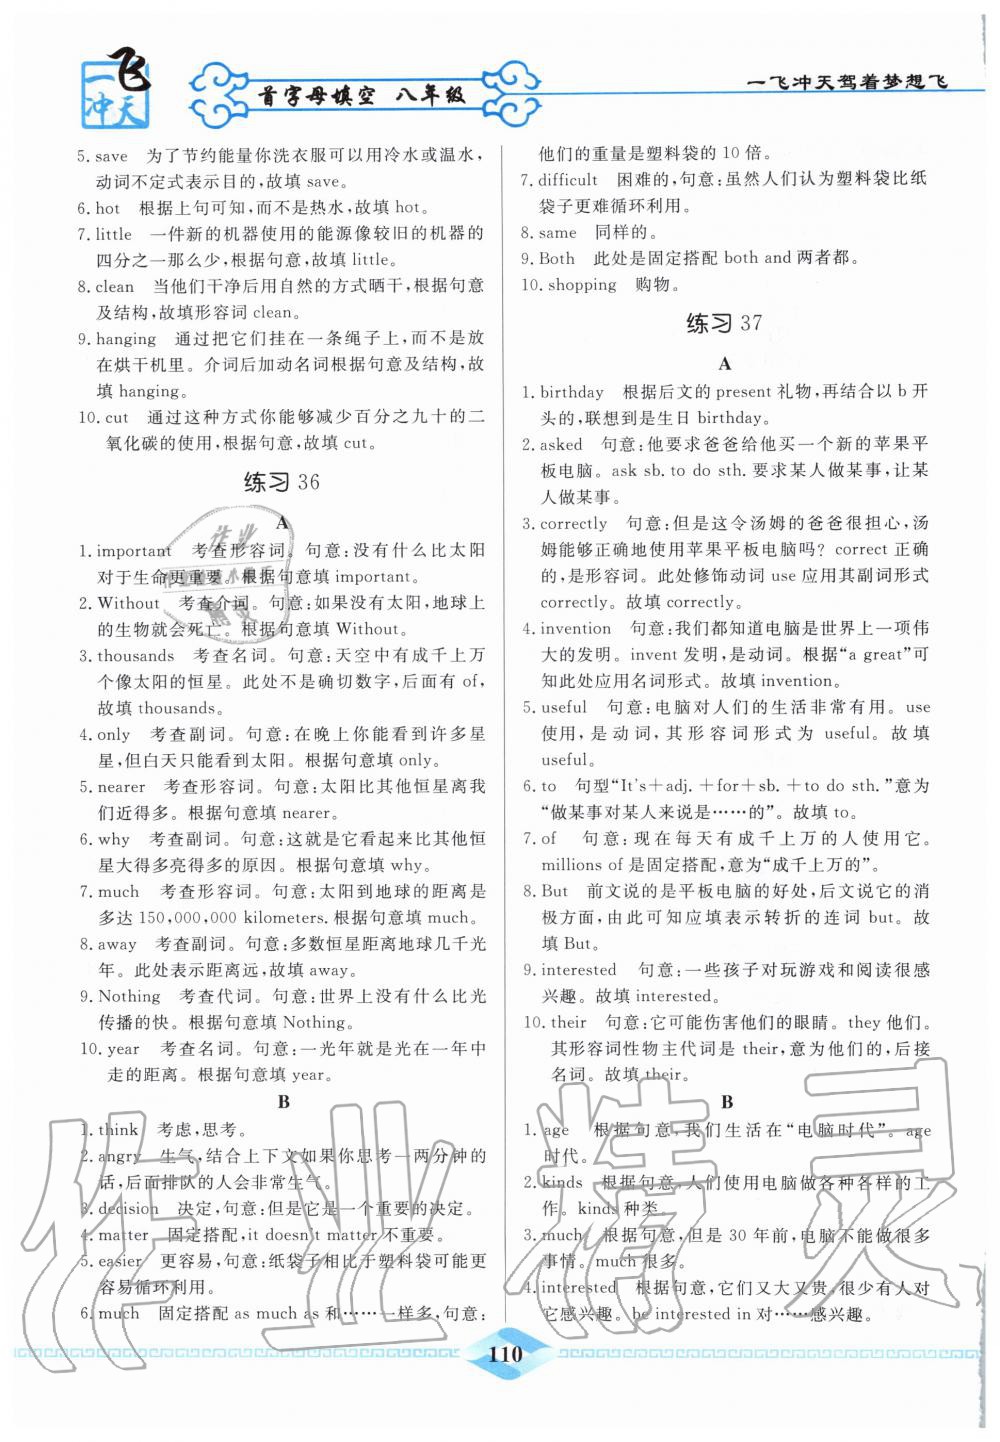 一飞冲天
首字母填空 八年级
一飞冲天驾着梦想飞
5. save 为了节约能量你洗衣服可以用冷水或温水,
动词不定式表示目的,故填 save。
6. hot 根据上句可知,而不是热水,故填 hot。
7. little 一件新的机器使用的能源像较旧的机器的
四分之一那么少,根据句意,故填 little。
8. clean 当他们干净后用自然的方式晒干,根据句意
及结构,故填形容词 clean。
9. hanging 通过把它们挂在一条绳子上,而不是放
在烘干机里。介词后加动名词根据句意及结构,故
填 hanging。
10. cut 通过这种方式你能够减少百分之九十的二
氧化碳的使用,根据句意,故填 cut。
练习 36
A
1. important 考查形容词。句意:没有什么比太阳
对于生命更重要。根据句意填 important。
2. Without 考查介词。句意:如果没有太阳,地球上
的生物就会死亡。根据句意填 Without。
3. thousands 考查名词。句意:天空中有成千上万
个像太阳的恒星。此处不是确切数字,后面有 of,
故填 thousands。
4. only 考查副词。句意:在晚上你能看到许多星
星,但白天只能看到太阳。根据句意填 only。
5. nearer 考查形容词。句意:太阳比其他恒星离我
们近得多。根据句意填 nearer。
6. why 考查副词。句意:这就是它看起来比其他恒
星大得多亮得多的原因。根据句意填 why。
7. much 考查形容词。句意:太阳到地球的距离是
多达 150,000,000 kilometers. 根据句意填 much。
8. away 考查副词。句意:多数恒星距离地球几千光
年。此处表示距离远,故填 away。
9. Nothing 考查代词。句意:世界上没有什么比光
传播的快。根据句意填 Nothing。
10. year 考查名词。句意:一光年就是光在一年中
走的距离。根据句意填 year。
B
1. think 考虑,思考。
2. angry 生气,结合上下文如果你思考一两分钟的
话,后面排队的人会非常生气。
3. decision 决定,句意:但是它是一个重大的决定。
4. matter 固定搭配,it doesn't matter 不重要。
5. easier 更容易,句意:纸袋子相比于塑料袋可能更
容易循环利用。
6. much 固定搭配 as much as 和……一样多,句意:
他们的重量是塑料袋的 10 倍。
7. difficult 困难的,句意:虽然人们认为塑料袋比纸
袋子更难循环利用。
8. same 同样的。
9. Both 此处是固定搭配 both and 两者都。
10. shopping 购物。
练习 37
A
1. birthday 根据后文的 present 礼物,再结合以 b 开
头的,联想到是生日 birthday。
2. asked 句意:他要求爸爸给他买一个新的苹果平
板电脑。ask sb. to do sth. 要求某人做某事,让某
人做某事。
3. correctly 句意:但是这令汤姆的爸爸很担心,汤
姆能够正确地使用苹果平板电脑吗? correct 正确
的,是形容词。此处修饰动词 use 应用其副词形式
correctly。故填 correctly。
4. invention 句意:我们都知道电脑是世界上一项伟
大的发明。invent 发明,是动词。根据“a great”可
知此处应用名词形式。故填 invention。
5. useful 句意:电脑对人们的生活非常有用。use
使用,是动词,其形容词形式为 useful。故填
useful。
6. to 句型“It's+adj. +for+sb. +to do sth.”意为
“做某事对某人来说是……的”。故填 to。
7. of 句意:现在每天有成千上万的人使用它。
millions of 是固定搭配,意为“成千上万的”。
8. But 前文说的是平板电脑的好处,后文说它的消
极方面,由此可知应填表示转折的连词 but。故
填 But。
9. interested 句意:一些孩子对玩游戏和阅读很感
兴趣。故填 interested。
10. their 句意:它可能伤害他们的眼睛。they 他们。
其形容词性物主代词是 their,意为他们的,后接
名词。故填 their。
B
1. age 根据句意,我们生活在“电脑时代”。age
时代。
2. kinds 根据句意,人们使用电脑做各种各样的工
作。kinds 种类。
3. much 根据句意,但是 30 年前,电脑不能做很多
事情。much 很多。
4. interested 根据句意,它们又大又贵,很少有人对
它感兴趣。be interested in 对……感兴趣。
110
作业精灵